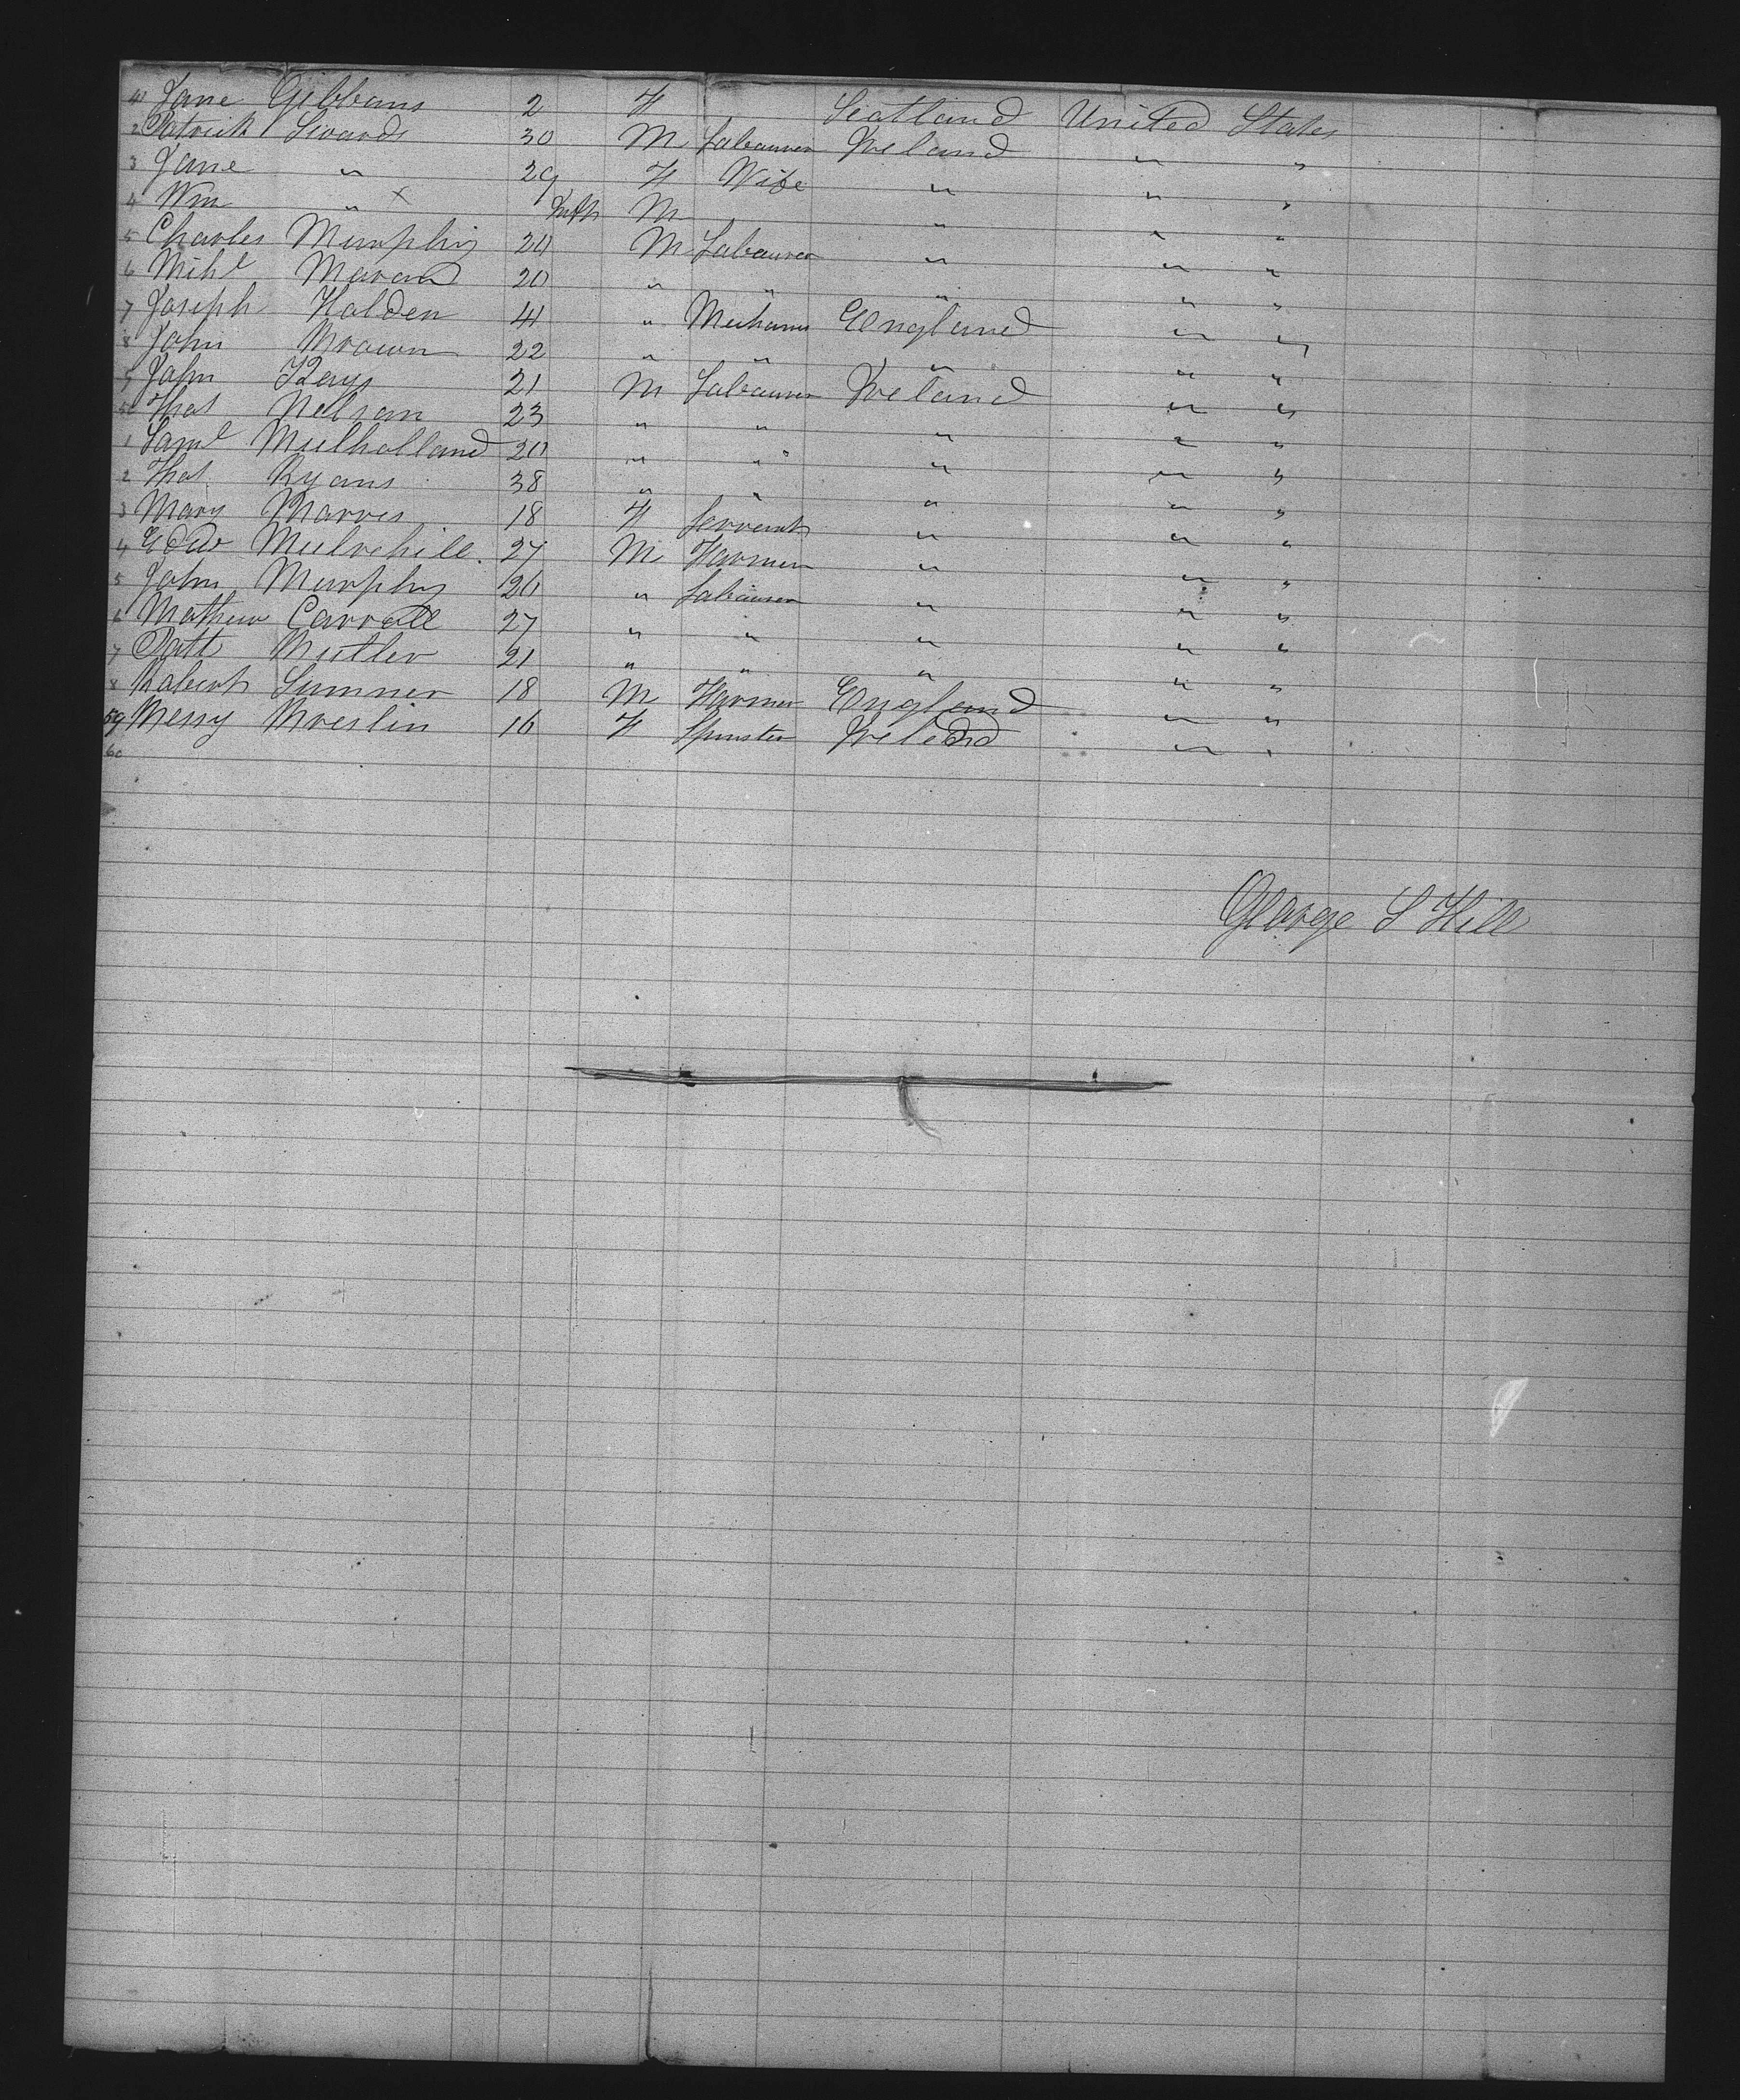 41 Jane Gibbons 2 F Scotland United States
2 Patrick Swards 30 M Labourer Ireland " "
3 Jane " 29 F Wife " " "
4 Wm " x Inft M " " "
5 Charles Murphy 20 M Labourer " " "
6 Mihl Moran 20 " " " " "
7 Joseph Holden 41 " Mechanic England " "
8 John Brown 22 " " " " "
9 John Keays 21 M Labourer Ireland " "
50 Thos Nelson 23 " " " " "
1 Saml Mulholland 20 " " " " "
2 Thos Ryans 38 " " " " "
3 Mary Barres 18 F Servant " " "
4 Edwd Mulvehill 27 M Farmer " " "
5 John Murphy 26 " Labourer " " "
6 Mathew Carroll 27 " " " " "
7 Patt Butler 21 " " " " "
8 Robert Sumner 18 M Farmer England " "
59 Bessy Breslin 16 F Spinster Ireland " "
60
George S Hill